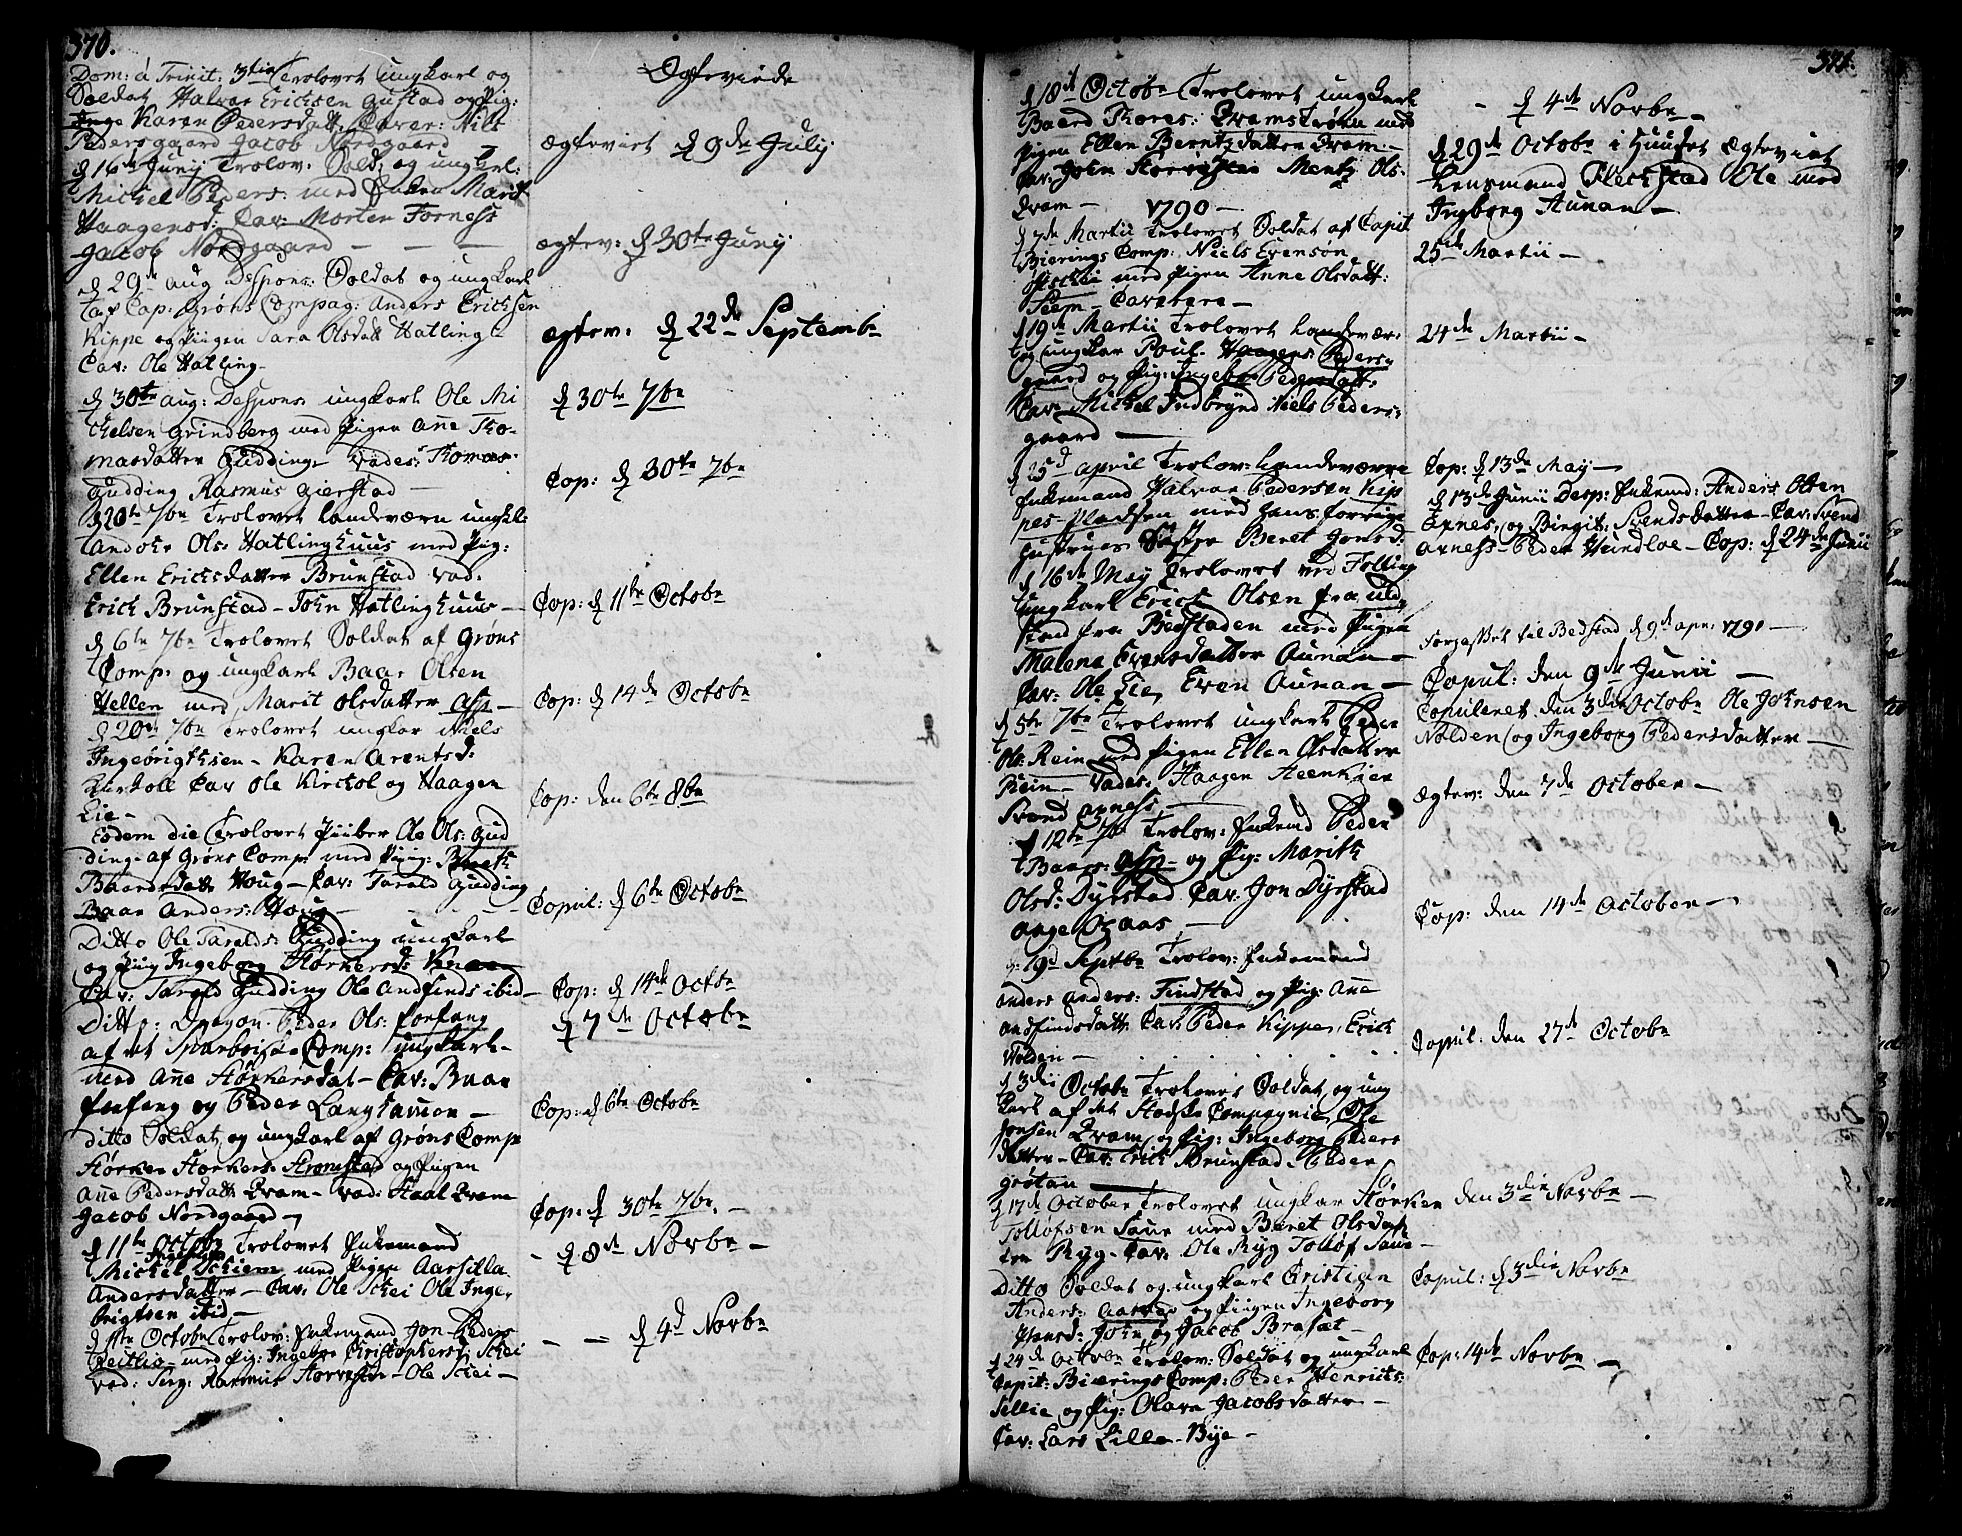 370.
Dom: á Trinit: 3tia Trolovet ungkarl og
Soldat Halvar Erichsen Gustad og Pig:
Inge Karen Pedersdatt. Caver: Nils
Pedersgaard Jacob Nordgaard
d 16de Junij Trolov. Sold. og ungkarl:
Michel Peders. med Enken Marit
Haagensd: Cav: Morten Forness
Jacob Nordgaard
d 29de aug Despons: Soldat og ungkarl
af Cap: Grøns Compag: Anders Erichsen
Kippe og Pigen Sara Olsdatt Hatling
Cav: Ole Hatling-
d 30te aug: Despons ungkarl Ole Mi
chelsen Grindberg med Pigen Añe Tho-
masdatter Gudding Vades: Thomas
Gudding Rasmus Gierstad
d 20te 7br Trolovet Landeværn ungkl:
Ols: Hatlinghuus med Pig:
Ellen Erichsdatter Brunstad Vad:
Erich Brunstad - John Hatlinghuus
d 6te 7br Trolovet Soldat af Grøns
Comp: og ungkarl Baar Olsen
Hellem med Marit Olsdatter Asp
d 20de 7br Trolovet ungkar Niels
Ingebrigthsen - Karen Arentsd:
Kirkoll Cav Ole Kirchol og Haagen
Lie-
Eodem die Trolovet Piiber Ole Ols: Gud
ding af Grøns Comp: med Piig: Bereth
Baardsdatt Houg - Cav: Tarald Gudding
Baar Anders: Houg
Ditto Ole Taralds: Gudding ungkarl
og Piig Ingeborg Størkersd:
Cav: Tarald Gudding Ole Andfinds ibid
Ditto: Dragon Peder Ols: Forfang
af et Sparboiske Comp: ungkarl
med Añe Størkersdat - Cav: Baar
Forfang og Peder Langhamm
ditto Soldat og ungkarl af Grøns Comp
Størker Størkers: Strømstad og Pigen
Añe Pedersdatt Qvam - Vad: Qvam
Jacob Nordgaard
d 11te Octobr Trolovet Enkemand
Michel Ingebrigts Schiem med Pigen Aarsilla
Andersdatter - Cav: Ole Schei Ole Inge-
brigtsen ibid-
Octobr Trolov: Enkemand Jon Peders
med Pig: Ingebor Christophersd: Schei
Vad: Serg: Rasmus - Ole Schei-
Ægteviede
Ægteviet d 9de Julij
Ægtev: d 30te Junij
Ægtev. d 22de Septembr
d 30te 7br
Cop: d 30te 7br
Cop: d 11te Octobr
Cop: d 14de Octobr
Cop: den 6te 8br
Copul: d 6te Octobr
Cop: d 14de Octbr
d 7de Octobr
Cop: d 6te Octobr
Cop: d 30te 7br.
- d 8de Novbr -
- - d 4de Novbr
371.
d 18de Octobr Trolovet ungkarl
Baard Thores: Qvamstrøm med
Pigen Ellen Berntsdatter Qvam
Cav: John Mentz Ols:
Qvam - 1790
d 7de Martii Trolovet Soldat af Capit
Bierings Comp: Niels Evensøn
med Pigen Anne Olsdatt:
Seem - Cavebara
d 19de Martii Trolovet Landevær:
og ungkar Poul Haagens Peders-
gaard og Pig: Ingebor Pedersdatt:
Cav: Michel Indbrynd Niels Peders-
gaard
d 25d April Trolov: Landeværn
Enkemand Halvar Pedersen Kip
pes-Pladsen med hans forrige
hustrues Beret Jonsd:
d 16de May Trolovet ved Følling
ungkarl Erich Olsen fra
fra Bedstaden med Pigen
Malena Evensdatter Aunan
Cav: Ole Lie, Even Aunan
d 5te 7br Trolovet ungkarl Peder
Ols: Rein med Pigen Ellen Olsdatter
Rein - Vades: Haagen Steenkier
Svend Arness
d 12te 7br Trolov: Enkemd Peder
Baars: Asp og Pig: Marith
Olsd: Dyrstad Cav: Jon Dyrstad
Aage Qvaas
19d Septbr Trolov: Enkemand
Anders Anders: Findstad og Pig: Añe
Andfindsdatt: Cav: Peder Kippen, Erich
Volden
d 3die Octobr Trolovet Soldat og ung
karl af det Stodske Compagnie Ole
Jonsen Qvam og Pig: Ingeborg Peders
datter - Cav: Erich Brunstad - Peder
Grøtan
d 17de October Trolovet ungkar Størker
Tollofsen Saur med Beret Olsdat
ter Ryg - Cav: Ole Ryg Tollof Saur
Ditto Soldat og ungkarl Christian
Anders: og Pigen Ingeborg
John og Jacob Brasæt
d 24de Octobr Trolov: Soldat og ungkarl
Capit: Bierings Comp: Peder Henrichs:
Sellie og Pig: Olava Jacobsdatter
Cav: Lars Lille-Bye
- d 4de Novbr -
d 29de Octobr i Huuset Ægteviet
Lensmand Fleckstad Ole med
Ingborg Aunan
25de Martii -
24de Martii -
Cop: d 13de May -
d 13de Junii Desp: Enkemd: Anders Olsen
Arnes, og Birgit: Svendsdatter - Cav: Svend
Arness - Peder Heindloe - Cop: d 24de Junii
til Bedstad d 9d apr: 1790
Copul: den 9de Junii
Copuleret den 3die Octobr Ole Johnsen
Volden og Ingeborg Pedersdatter
Ægtev: den 7de October
Cop: den 14de October
Copul: den 27de Octobr
den 3die Novbr
Copul: d 3die Novbr
Cop: 14de Novbr